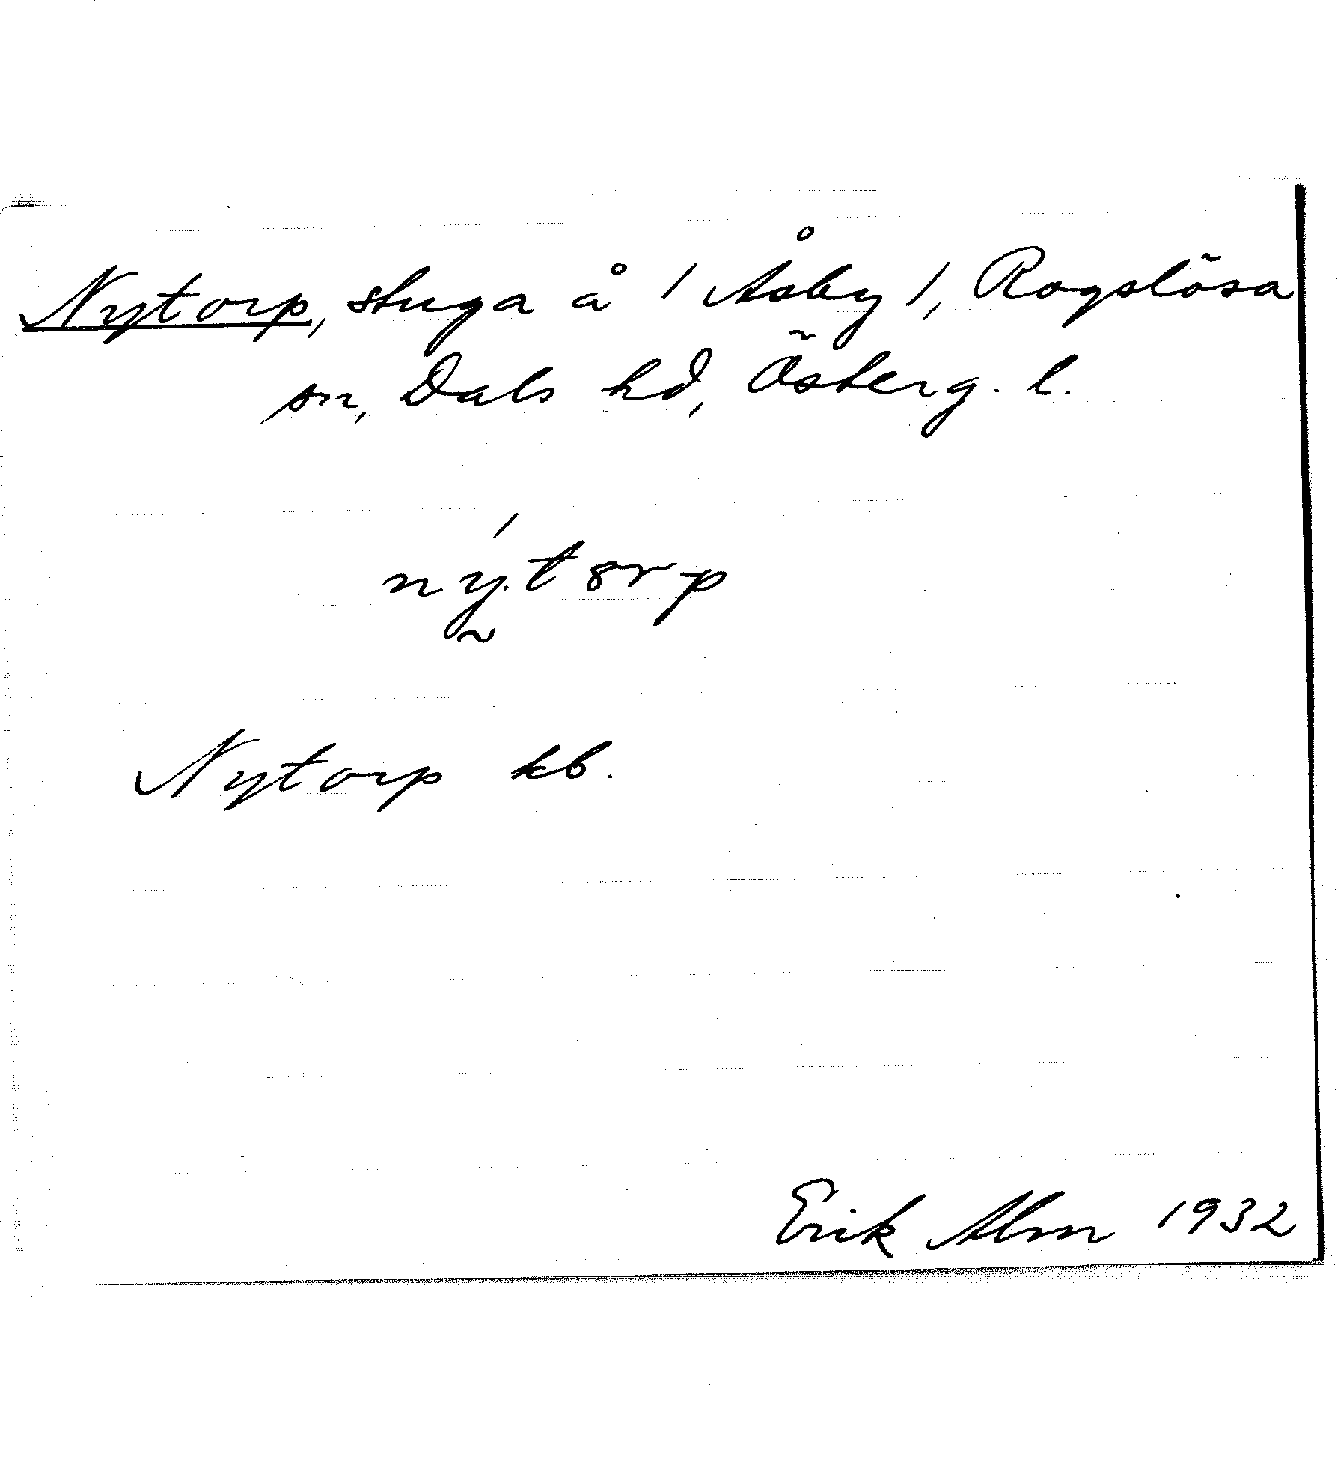 Nytorp, stuga å / Åsby /, Rogslösa
sn, Dals hd, Österg. l.
ný.t8rp
Nytorp kb.
Erik Alm 1932